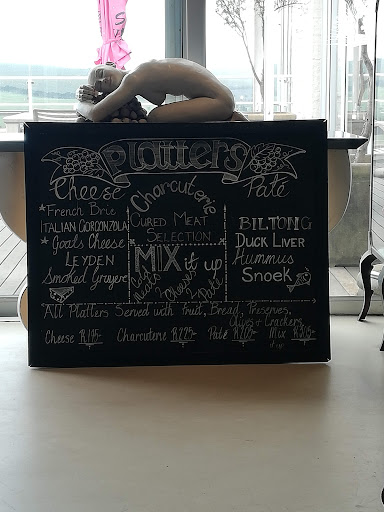 Platters
Cheese
* French Brie
ITALIAN GORGONZOLA
* Goats Cheese
LEYDEN
Smoked Gruyere
Charcuterie
CURED MEAT
SELECTION
MIX it up
Cold Meats
Cheese
Paté
Paté
BILTONG
DUCK LIVER
Hummus
Snoek
All Platters Served with fruit, Bread, Preserves,
Olives + Crackers
Cheese R195- Charcuterie R225- Paté R205- Mix
it up